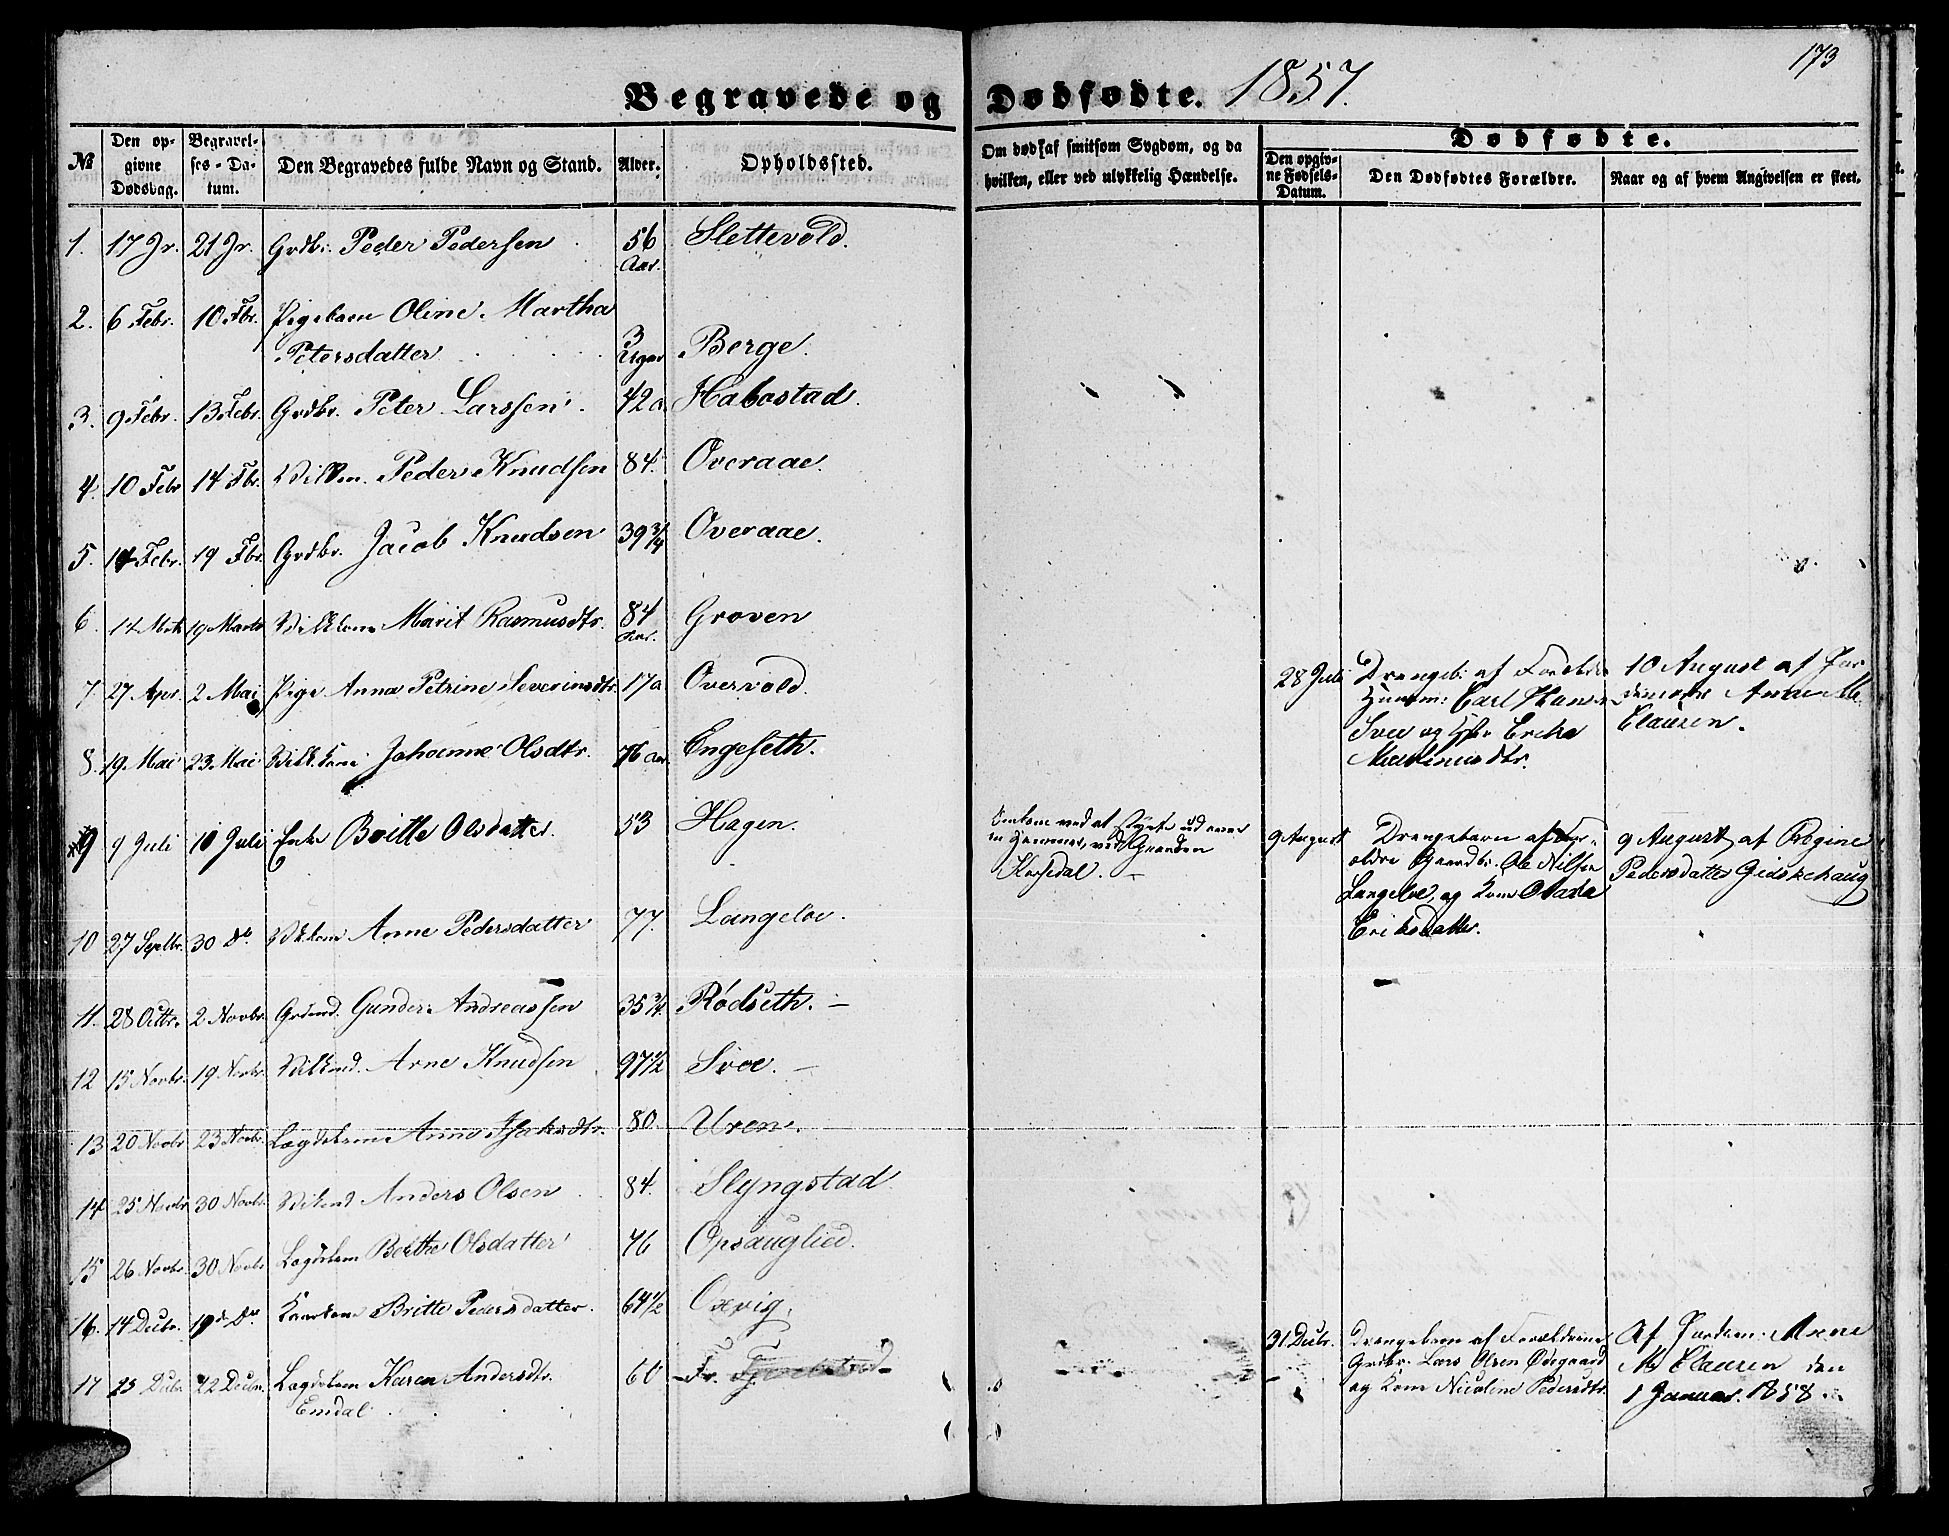 173
Begravede og Dødfødte. 1857.
№
Den op-
givne
Dødsdag.
Begravel-
ses-Da-
tum.
Den Begravedes fulde Navn og Stand.
Alder.
Opholdssted.
Om død af smitsom Sygdom, og da
hvilken, eller ved ulykkelig Hændelse.
Dødfødte.
Den opgiv-
ne Fødsels-
Datum.
Den Dødfødtes Forældre.
Naar og af hvem Angivelsen er skeet.
1. 17 Jr. 21 Jr. Grdbr. Peder Pedersen 56 Slettevold.
Aar.
2. 6 Febr. 10 Fbr. Pigebarn Oline Martha
Petersdatter 3 Uger Berge.
3. 9 Febr. 13 Febr. Grdbr. Peter Larssen 42 a. Habostad.
4. 10 Febr 14 Fbr. Vilkm. Peder Knudsen 84. Overaae.
5. 14 Febr. 19 Fbr. Grdbr. Jacob Knudsen 39 3/4 Overaae.
6. 14 Mrts 19 Marts Vilkkone Marit Rasmusdtr. 84 Groven
Aar.
7. 27 Apr. 2 Mai Pige Anna Petrine Severinsdtr. 17 a Overvold.
28 Juli Drengeb. af Forældre
Huusm: Carl Hansen
Svee og Hstr Erika
Martinusdtr.
10 August af Jor
demoder Anne M.
Clausen.
8. 19 Mai 23 Mai Vilkkone Johanne Olsdtr. 76 Aar. Engeseth.
9 9 Juli 10 Juli Enke Britte Olsdatter. 53 Hagen.
Omkom ved at styrte ud over
en Hammer, ved Gaarden
Korsedal.
9 August Drengebarn af For-
ældre Gaardbr. Ole Nilsen
Langeloe, og Kone
Eriksdatter.
9 August af Regine
Pedersdatter Gidskehaug
10 27 Septbr. 30 do Vilkkone Anne Pedersdatter 77. Langeloe.
11. 28 Octbr. 2 Novbr. Grdmd. Gunder Andreassen 35 3/4. Rødseth.
12 15 Novbr. 19 Novbr. Vilkmd. Arne Knudsen 97 1/2 Svee.
13 20 Novbr 23 Novbr. Lægdskone Anne Isaksdtr. 80. Uren.
14 25 Novbr 30 Novbr. Vilkmd Anders Olsen 84. Slyngstad
15 26 Novbr. 30 Novbr Lægdskone Berthe Olsdatter 76 Opsauglied.
16. 14 Decbr. 19de Do Kaarkone Britte Pedersdatter. 64 1/2 Oxvig.
17 15 Decbr. 22 Decbr. Lægdskone Karen Andersdtr. 60 Fr.
Emdal
31 Decbr. Drengebarn af Forældrene
Grdbr. Lars Olsen Ødegaard
og Kone Nicoline Pedersdtr.
Af Jordem: Anne
M Clausen den
1 Januar. 1858.